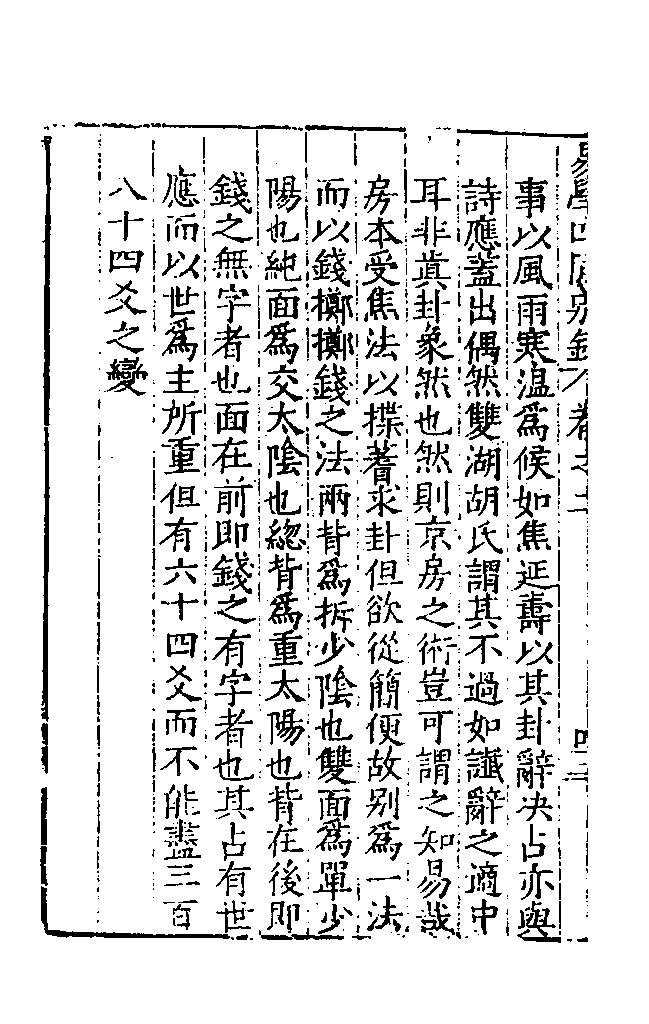 易學四同別錄卷之二
四十二
事以風雨寒温爲候如焦延壽以其卦辭决占亦與
詩應蓋出偶然雙湖胡氏謂其不過如讖辭之適中
耳非眞卦象然也然則京房之術豈可謂之知易哉
房本受焦法以揲蓍求卦但欲從簡便故别爲一法
而以錢擲擲錢之法兩背爲拆少陰也雙面爲單少
陽也純面爲交太陰也總背爲重太陽也背在後即
錢之無字者也面在前即錢之有字者也其占有世
應而以世爲主所重但有六十四爻而不能盡三百
八十四爻之變